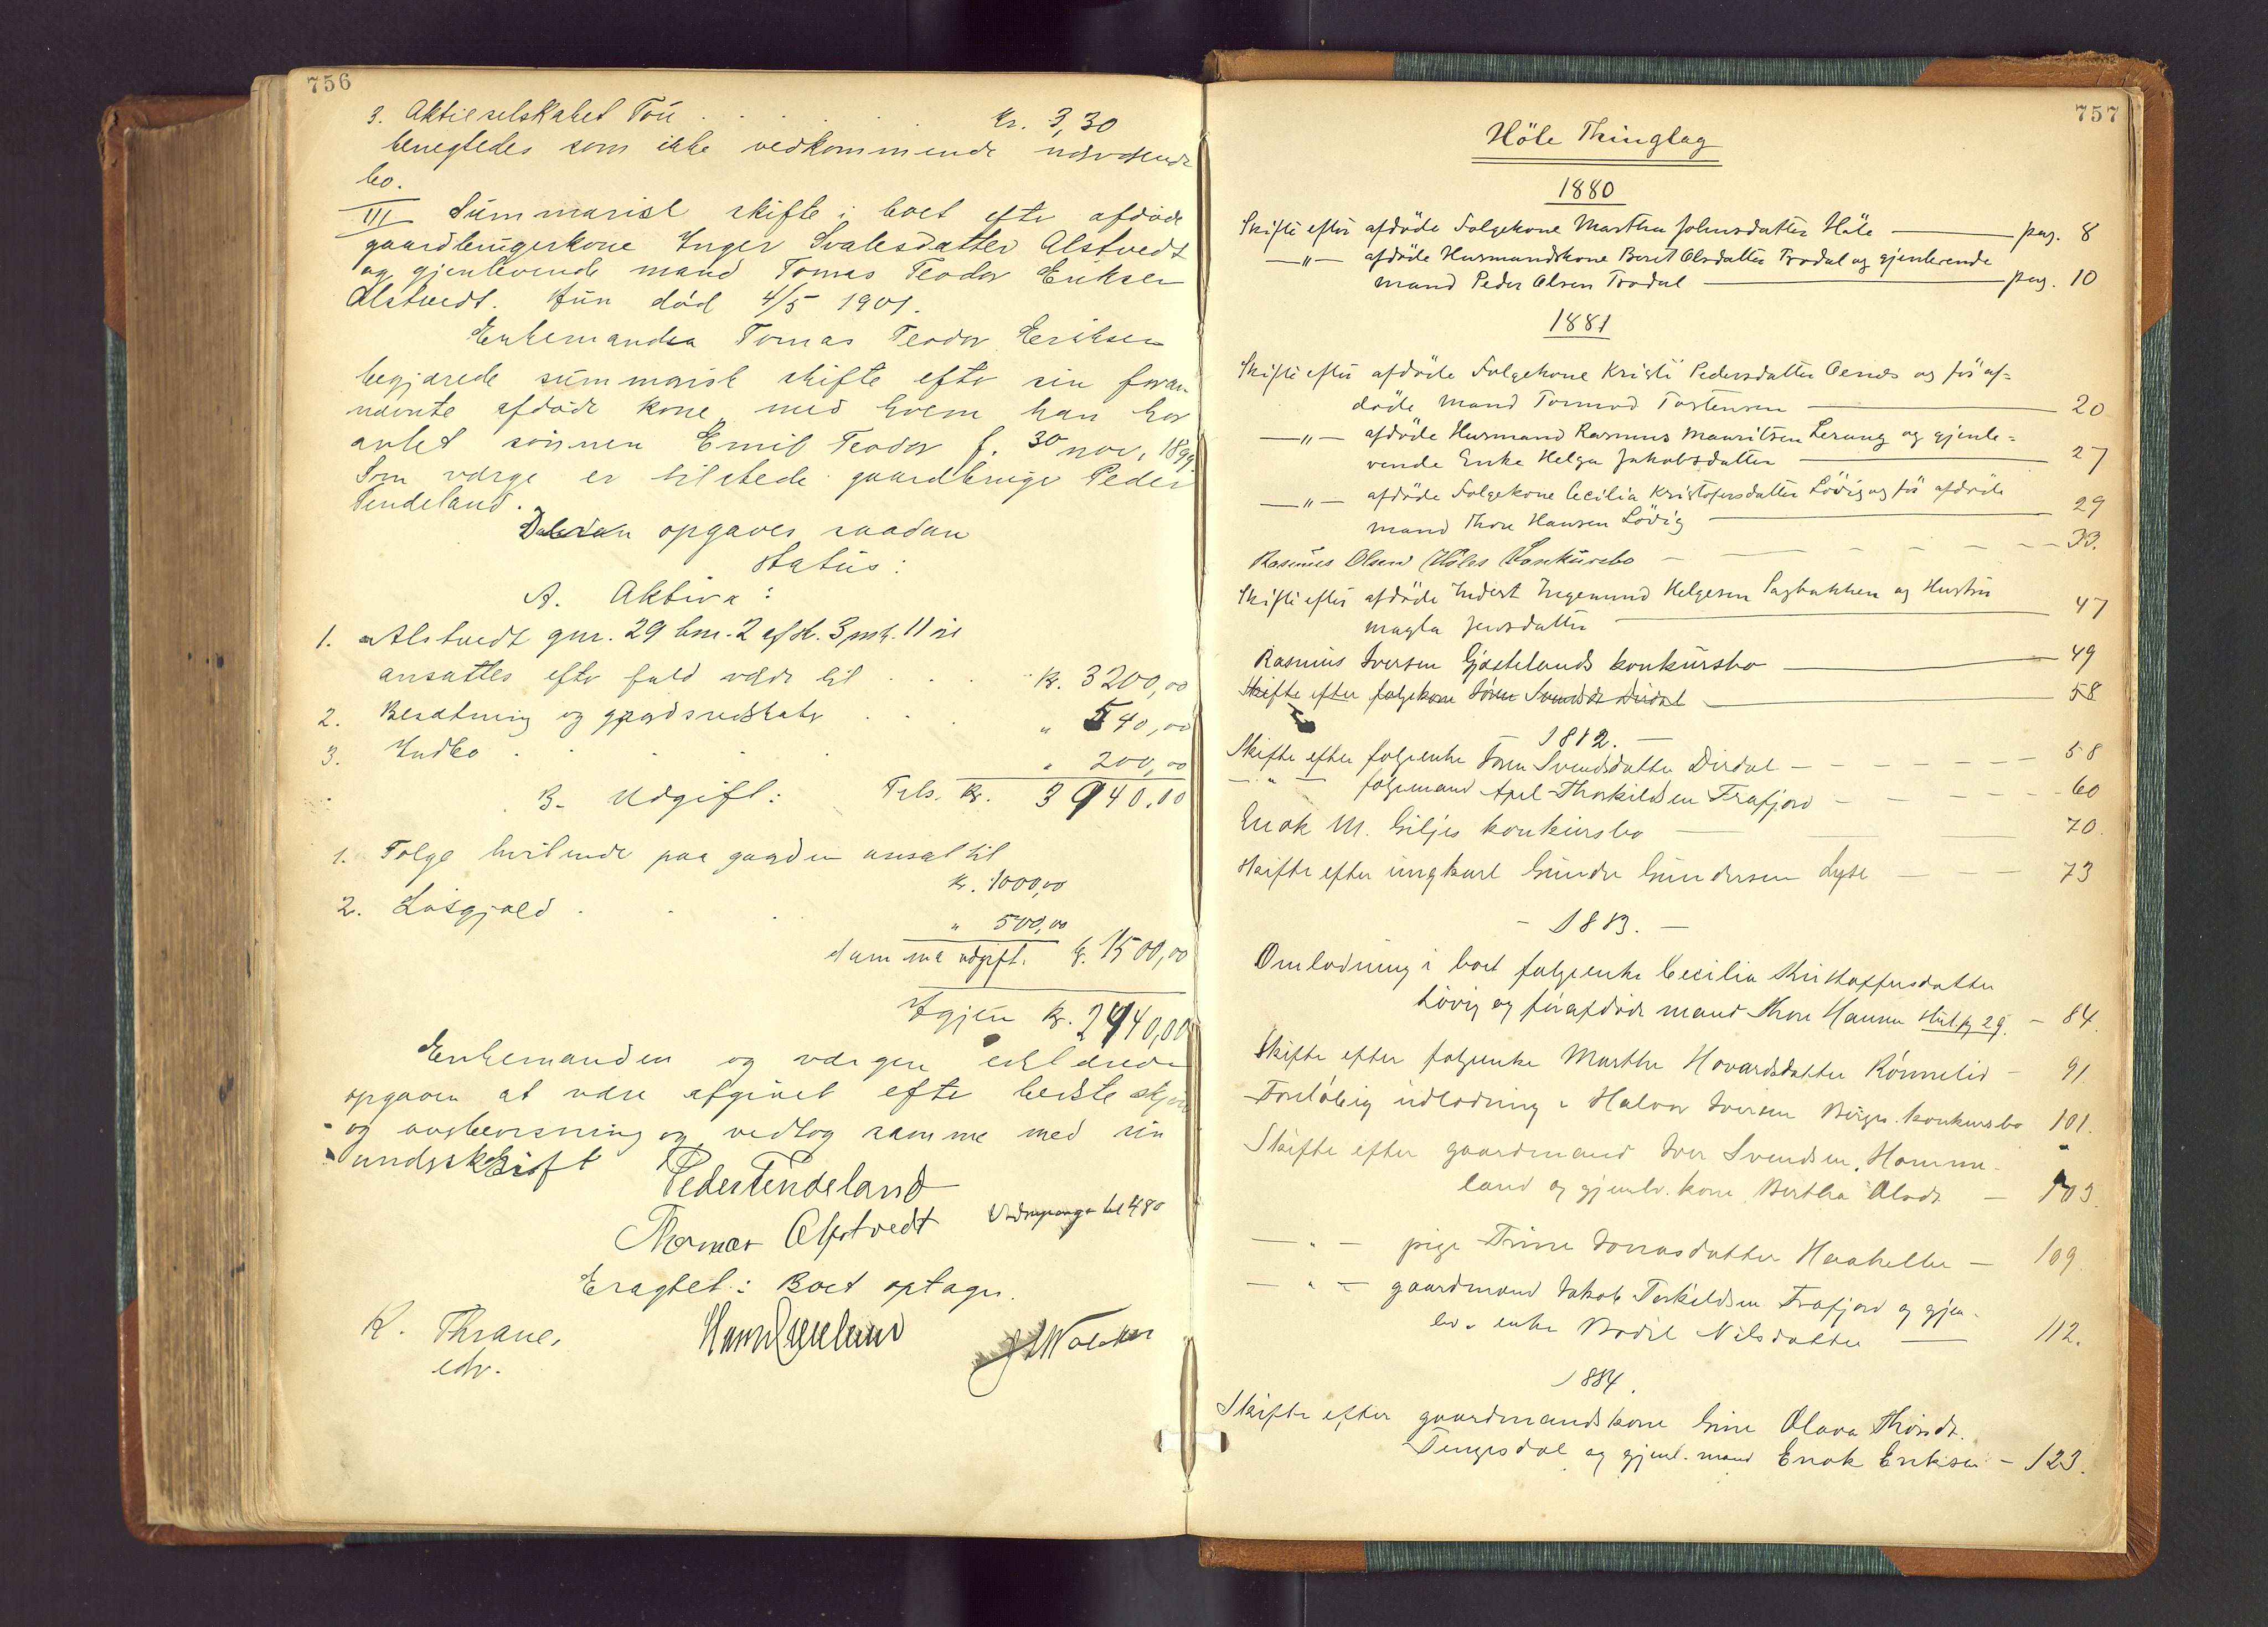 756
3. Aktieselskabet Tou . . . . Kr. 3,30
benegtedes som ikke vedkommende
bo.
III Summarisk skifte i boet efter afdøde
gaardbrugerkone Inger Svalesdatter Alstvedt
og gjenlevende mand Tomas Teodor Eriksen
Alstvedt. Hun død 4/5 1901.
Enkemanden Tomas Teodor Eriksen
begjærede summarisk skifte efter sin foran
nævnte afdøde kone, med hvem han har
avlet sønnen Emil Teodor f. 30 nov. 1899.
Som værge er tilstede gaardbruger Peder
Tendeland.
opgaves saadan
Status:
A. Aktiva:
1. Alstvedt gnr. 29 bnr. 2 af sk. 3 mk. 11 øre
ansattes efter fuld værdi til . . . Kr. 3200,00
2. Besætning og gaardsredskaber . . . " 540,00
3. Indbo . . . . " 200,00
B. Udgift: Tils. Kr. 3940,00
1. Følge hvilende paa gaarden ansat til
Kr. 1000,00
2. Løsgjæld . . . " 500,00
Summa udgift. Kr. 1500,00
Igjen Kr. 2440,00
Enkemanden og værgen erklærede
opgaven at være afgivet efter bedste skjøn
og overbevisning og vedtog samme med sin
underskrift
Peder Tendeland
Thomas Alstvedt
Eragtet: Boet optages.
K. Thrane,
edv.
757
Höle Thinglag
1880
Skifte efter afdøde Folgekone Martha Johnsdatter Höle — pag. 8
— " — afdøde Husmandskone Berit Olsdatter Trodal og gjenlevende
mand Peder Olsen Trodal — pag. 10
1881
Skifte efter afdøde Folgekone Kristi Pedersdatter Oenes og før af-
døde Mand Tormod Tostensen — 20
— " — afdøde Husmand Rasmus Mauritsen Lerang og gjenle-
vende Enke Helga Jakobsdatter — 27
— " — afdøde Folgekone Cecilia Kristofersdatter Lövig og før afdøde
mand Thore Hansen Lövig — 29
Rasmus Olsen Høles Konkursbo — 33.
Skifte efter afdøde Inderst Ingemund Helgesen Sagbakken og Hustru
Magla Jensdatter — 47
Rasmus Iversen Gjestelands konkursbo — 49
Skifte efter folgekone Søren Svendsdr Dirdal — 58
1882.
Skifte efter folgeenke Soren Svendsdatter Dirdal — 58
— " — folgemand Apel Thorkildsen Frafjord — 60
Enok M. Giljes konkursbo — 70.
Skifte efter ungkarl Gunder Gundersen Lyse — 73
- 1883. -
Omlodning i boet folgeenke Cecilia Kristoffersdatter
Lövig og før afdøde mand Thore Hansen — 84.
Skifte efter folgeenke Martha Hovardsdatter Rönnelid — 91.
Foreløbig udlodning i Halvor Iversen Birges konkursbo 101.
Skifte efter gaardmand Iver Svendsen Homme-
land og gjenlv. kone Bertha Olsdr. — 103.
— " — pige Trine Jonasdatter Haahelle — 109.
— " — gaardmand Jakob Torkildsen Frafjord og gjen-
lev. enke Bodil Nilsdatter — 112.
1884.
Skifte efter gaardmandskone Gine Olava Thorsdr.
Tengesdal og gjenl. mand Enok Eriksen — 123.